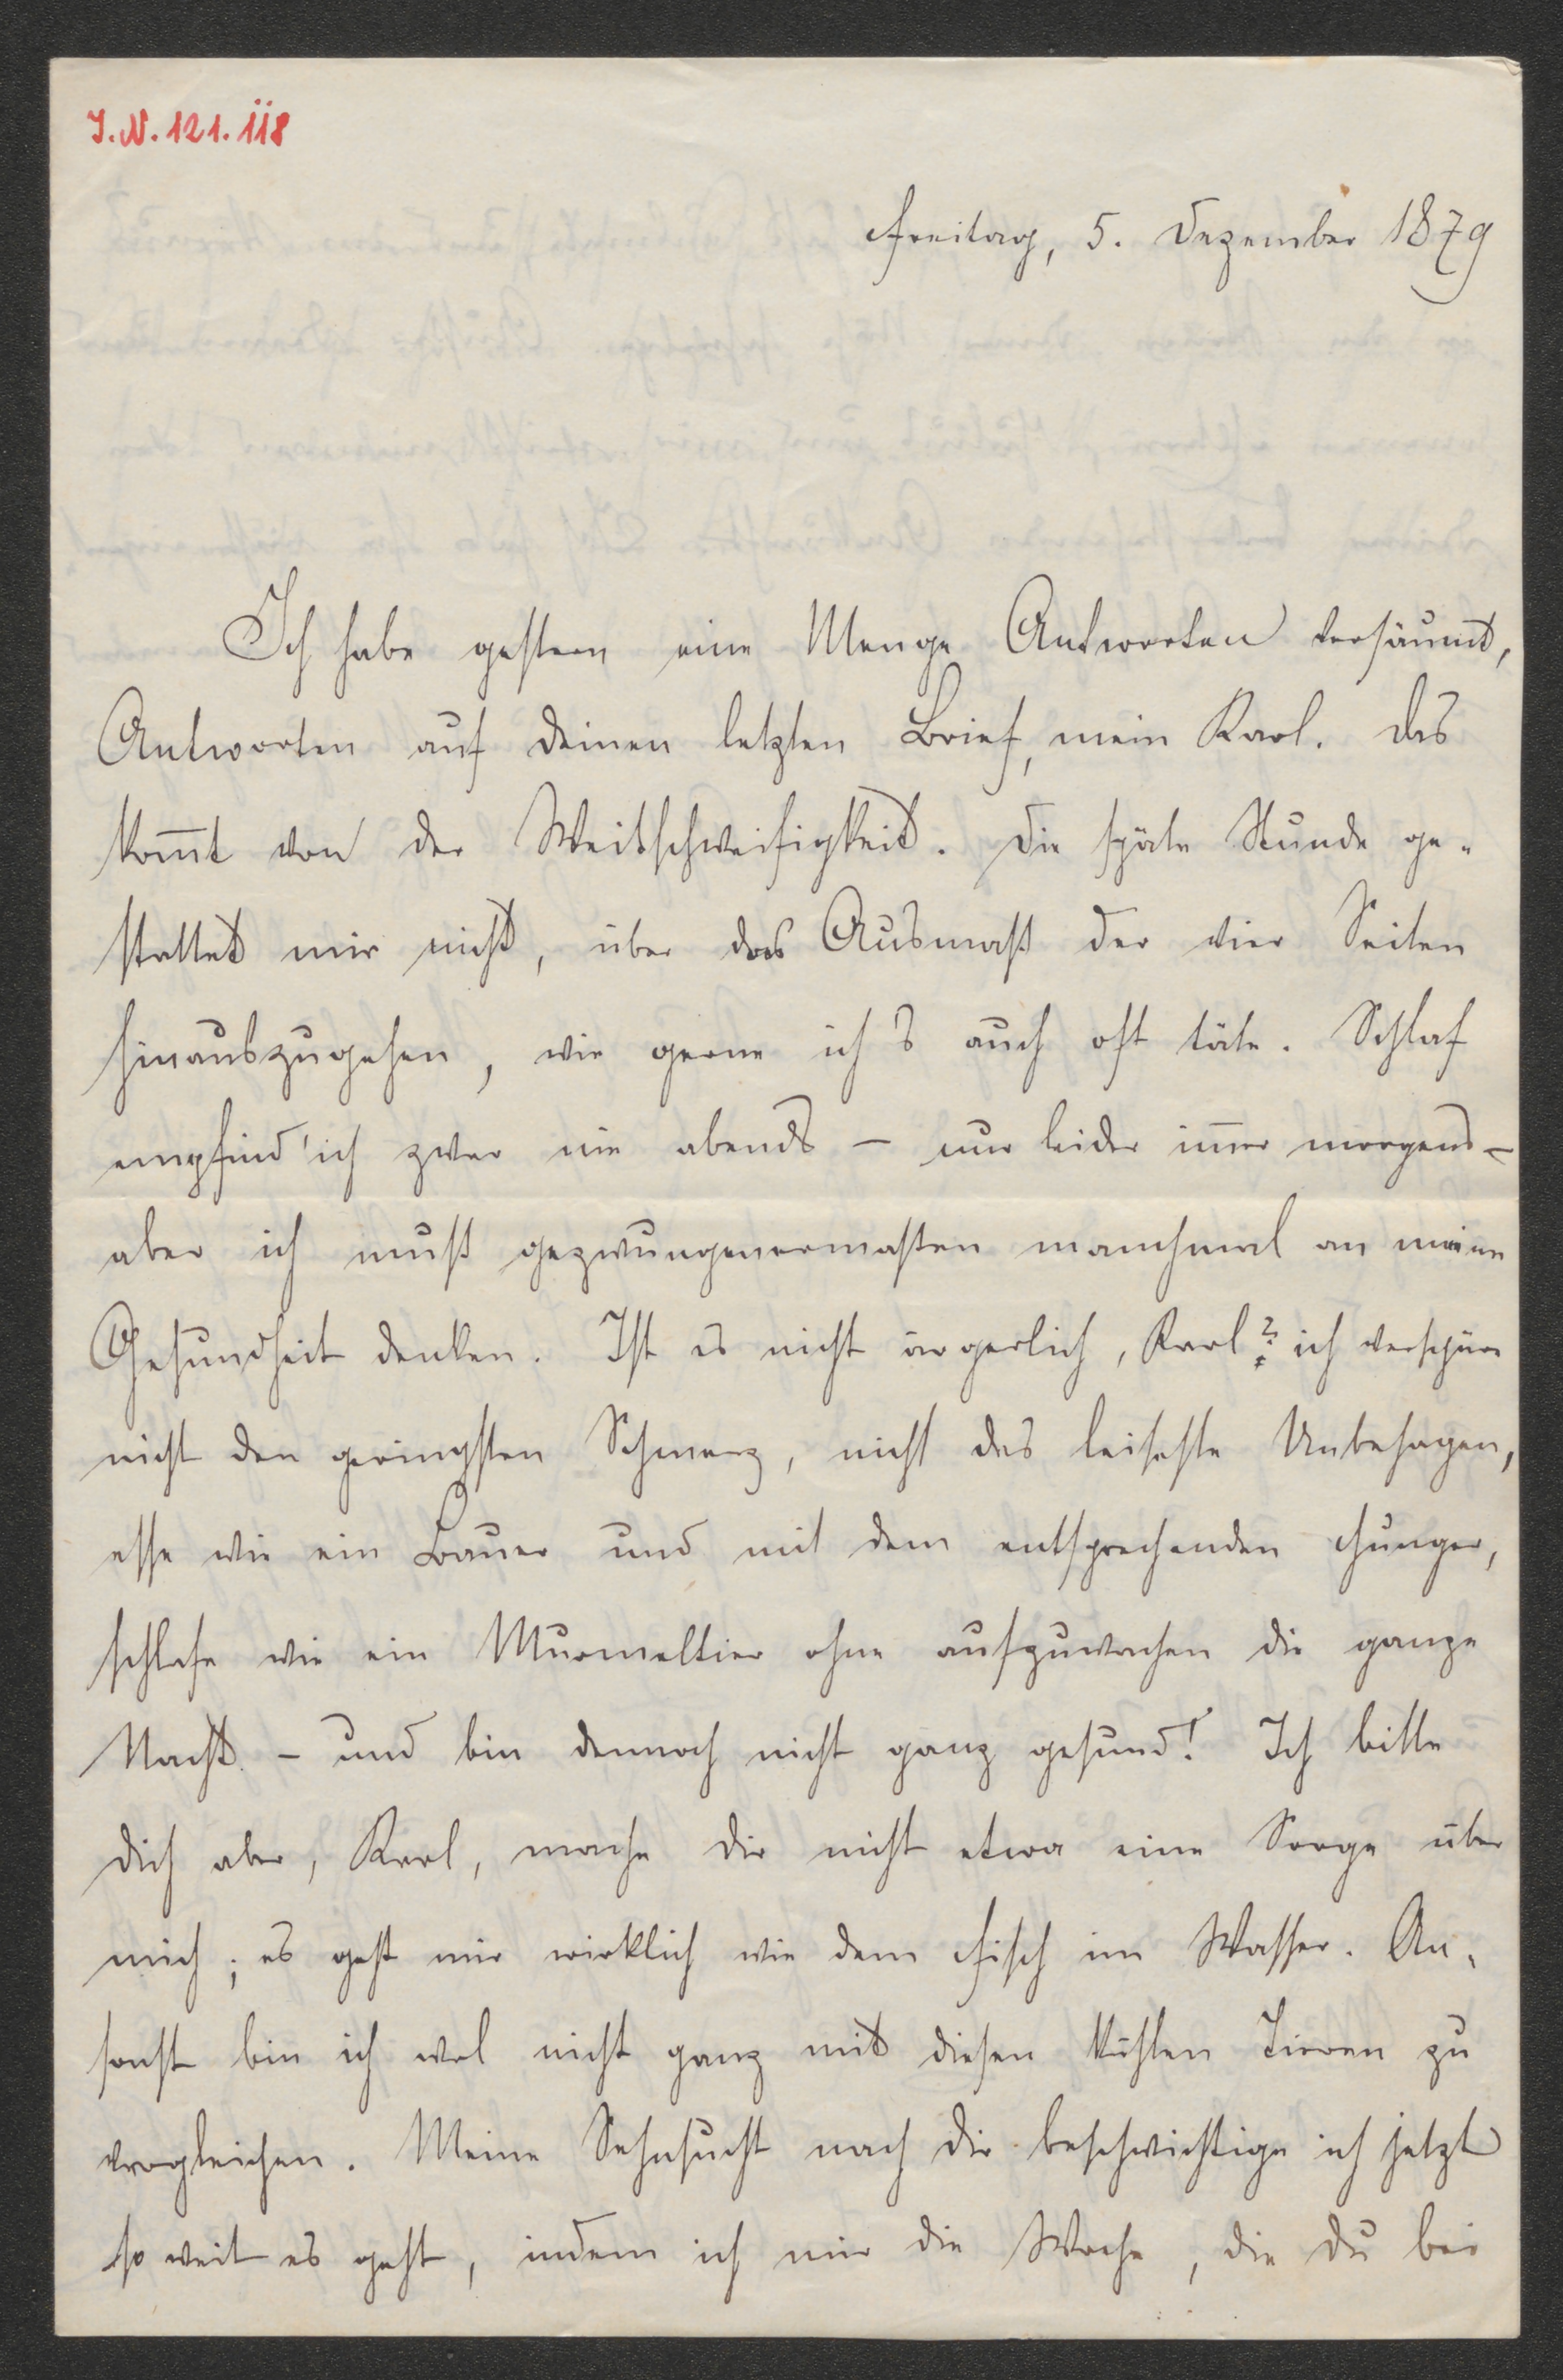 I.N. 121.118
Freitag, 5. Dezember 1879
Ich habe gestern eine Menge Antworten versäumt,
Antworten auf deinen letzten Brief, mein Karl. Das
kom̅t von der Weitschweifigkeit. Die späte Stunde ge-
stattet mir nicht, über das Ausmaß der vier Seiten
hinauszugehen, wie gerne ich's auch oft täte. Schlaf
empfind' ich zwar nie abends – nur leider im̅er morgens –
aber ich muß gezwungenermaßen manchmal an meine
Gesundheit denken. Ist es nicht ärgerlich, Karl? ich verspüre
nicht den geringsten Schmerz, nicht das leiseste Unbehagen,
esse wie ein Bauer und mit dem entsprechenden Hunger,
schlafe wie ein Murmeltier ohne aufzuwachen die ganze
Nacht – und bin dennoch nicht ganz gesund! Ich bitte
dich aber, Karl, mache dir nicht etwa eine Sorge über
mich; es geht mir wirklich wie dem Fisch im Wasser. An-
sonst bin ich wol nicht ganz mit diesen kühlen Tieren zu
vergleichen. Meine Sehnsucht nach dir beschwichtige ich jetzt
so weit es geht, indem ich mir die Woche, die du bei